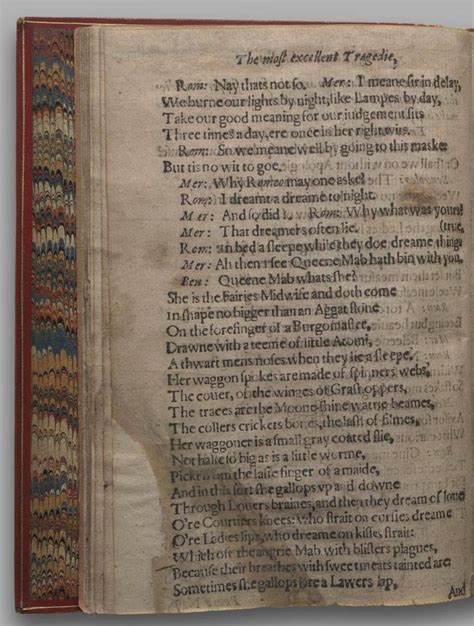 The most excellent Tragedie,
Rom: Nay thats not so. Mer: I meane sir in delay,
We burne our lights by night, like Lampes by day,
Take our good meaning for our iudgement sits
Three times a day, ere once in her right wits.
Rom: So we meane well by going to this maske:
But tis no wit to goe.
Mer: Why Romeo may one aske?
Rom: I dreamt a dreame to night.
Mer: And so did I. Rom: Why what was yours?
Mer: That dreamers often lie. (true,
Rom: In bed a sleepe while they doe dreame things
Mer: Ah then I see Queene Mab hath bin with you,
Ben: Queene Mab whats she?
She is the Fairies Midwife and doth come
In shape no bigger than an Aggat stone
On the forefinger of a Burgomaster,
Drawne with a teeme of little Atomi,
A thwart mens noses when they lie a sleepe.
Her waggon spokes are made of spinners webs,
The couer, of the winges of Grashoppers,
The traces are the Moone-shine watrie beames,
The collers crickets bones, the lash of filmes,
Her waggoner is a small gray coated flie,
Not halfe so big as is a little worme,
Pickt from the lasie finger of a maide,
And in this sort she gallops vp and downe
Through Louers braines, and then they dream of loue
O're Courtiers knees: who strait on cursies dreame
O're Ladies lips, who dreame on kisses strait:
Which oft the angrie Mab with blisters plagues,
Because their breathes with sweet meats tainted are:
Sometimes she gallops ore a Lawers lap,
And